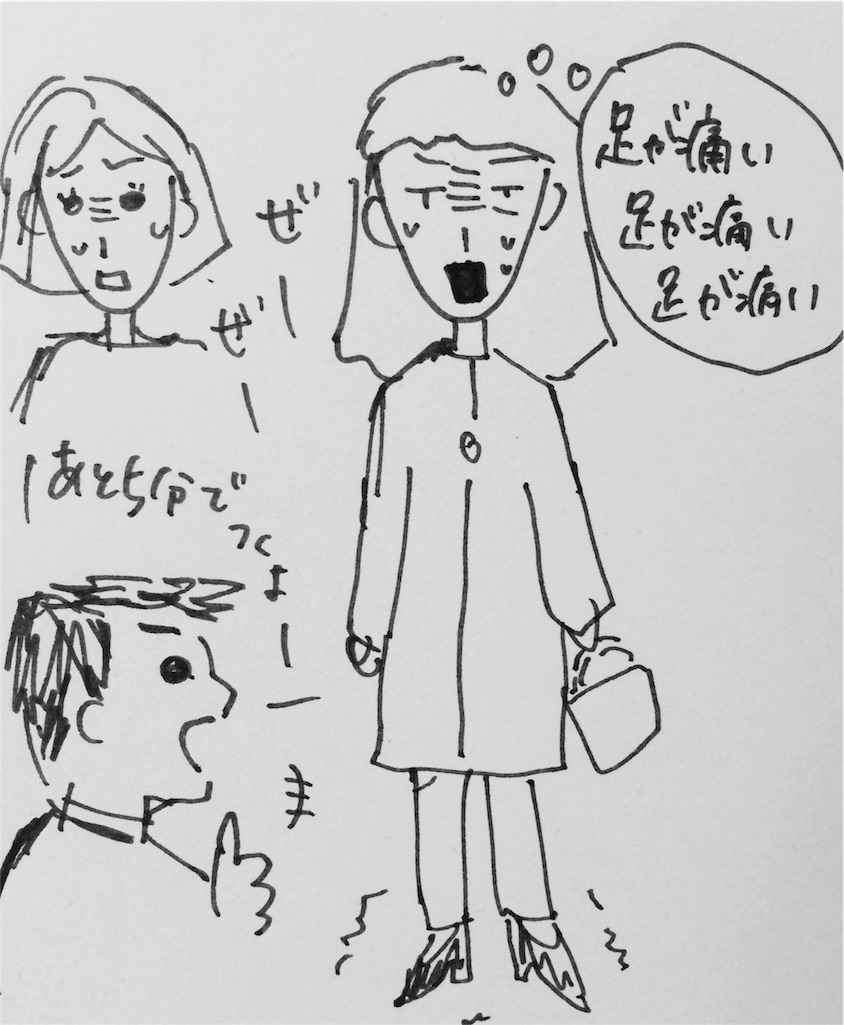 足が痛い
足が痛い
足が痛い
ぜー
ぜー
あと5分で
つくよー